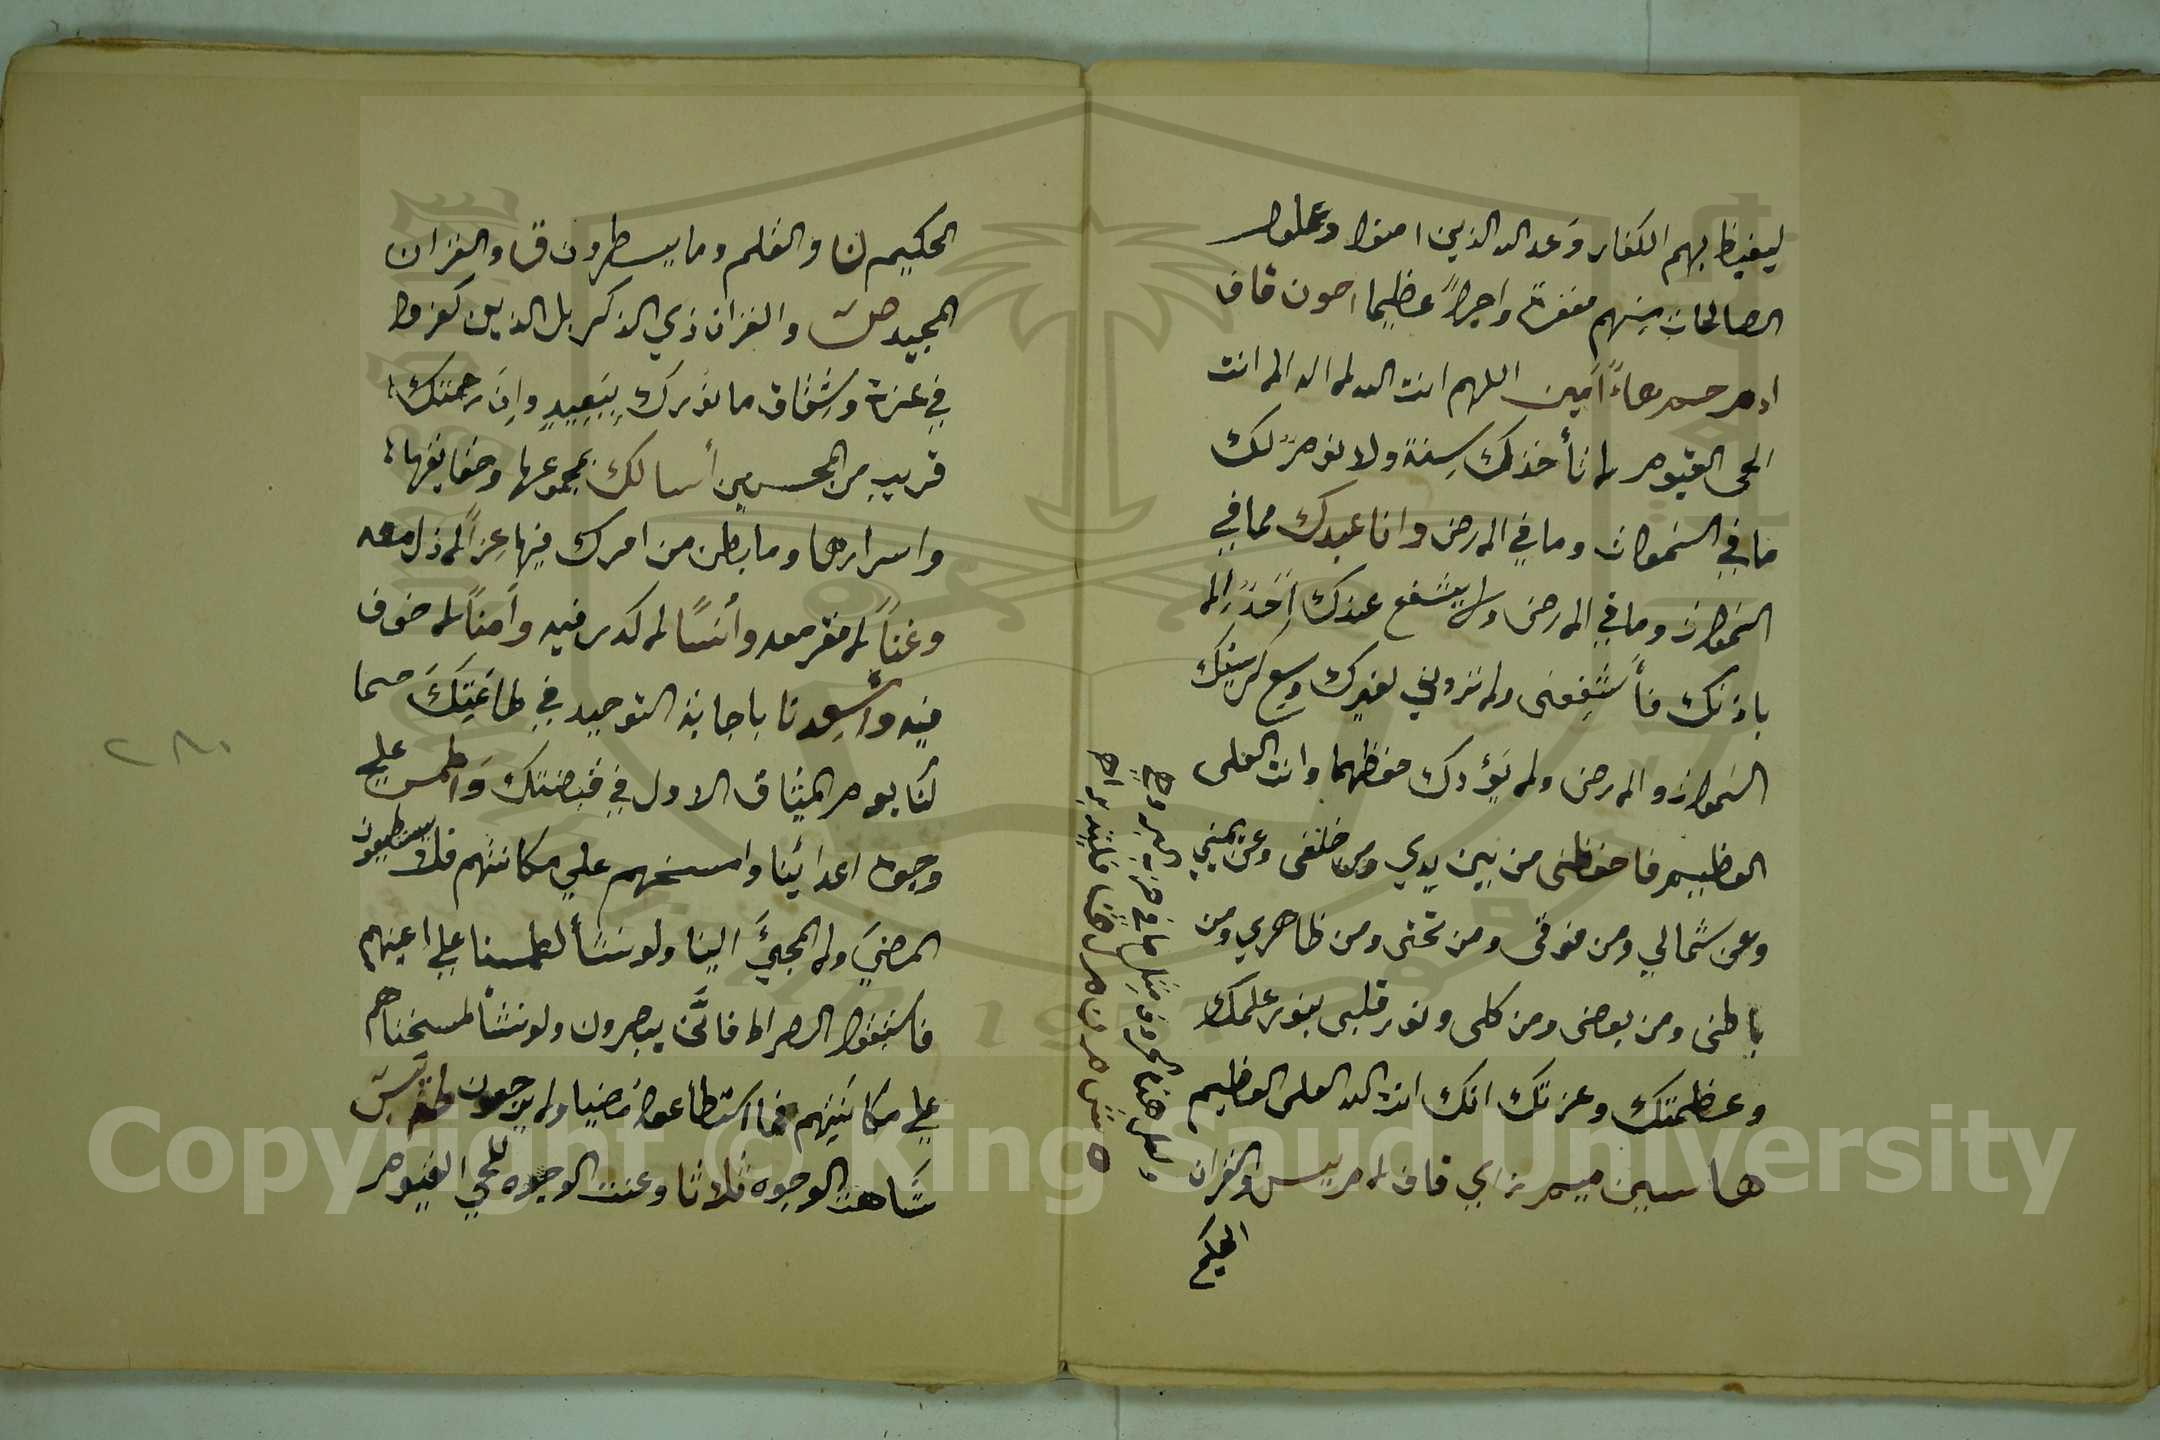 ليغيظ بهم الكفار وعد الله الذين امنوا وعملوا
الصالحات منهم مغفرة واجراً عظيما احون قاف
ادم حم هاءً آمين اللهم انت الله لا اله الا انت
الحى القيوم لا تأخذك سِنة ولا نوم لك
ما في السموات وما في الارض وانا عبدك مما في
السموات وما في الارض ولا يشفع عندك أحدٌ الا
باذنك فأشفعنى ولا تردني لغيرك وسع كرسيك
السموات والارض ولا يؤدك حفظهما وانت العلى
العظيم فاحفظنى من بين يدي ومن خلفى وعن يميني
وعن شمالي ومن فوقى ومن تحتى ومن ظاهري ومن
باطنى ومن بعضى ومن كلى ونور قلبى بنور علمك
وعظمتك وعزتك انك انت الله العلى العظيم
ها سين ميم زاي قاف لام يس والقران
الحكيم
الحكيم ن والقلم وما يسطرون ق والقران
المجيد ص والقران ذي الذكر بل الذين كفروا
في عزة وشِقاق ما نورك بِبَعِيدٍ واِنَ رحمتك
قريب من المحسنين أسالك بمجموعها وحقايقها
واسرارها وما بطن من امرك فيها عِزاً لا ذل معه
وغناً لا فقر معه وأنسًا لا كدر فيه وآمناً لا خوف
فيه وأسعدنا باجابة التوحيد في طاعَتِكَ حسما
كنَا يوم الميثاق الاول في قبضتك وَاطمس على
وجوه اعدائِنا وامسخهم علي مكانتهم فلا يستطيعون
المضيَ ولا المجيَّ الينا ولو نشأ لطمسنا على اعينهم
فاستبقوا الصراط فانَّى يبصرون ولو نشأ لمسخناهم
علي مكانتهم فما استطاعوا مُضيا ولا يرجعون طس
شاهت الوجوه ثلاثا وعنت الوجوه للحي القيوم